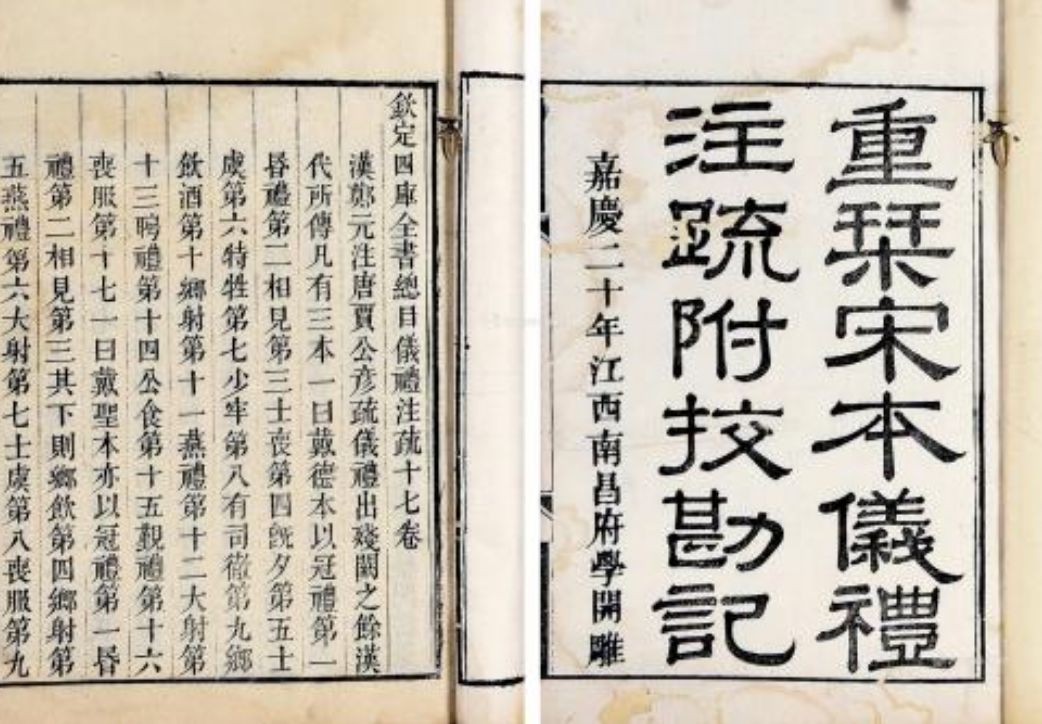 重栞宋本儀禮
注疏附挍勘記
嘉慶二十年江西南昌府學開雕
欽定四庫全書總目儀禮注疏十七卷
漢鄭元注唐賈公彦疏儀禮出殘闕之餘漢
代所傳凡有三本一曰戴德本以冠禮第一
昏禮第二相見第三士喪第四旣夕第五士
虞第六特牲第七少牢第八有司徹第九鄉
飲酒第十鄉射第十一燕禮第十二大射第
十三聘禮第十四公食第十五覲禮第十六
喪服第十七一曰戴聖本亦以冠禮第一昏
禮第二相見第三其下則鄉飲第四鄉射第
五燕禮第六大射第七士虞第八喪服第九